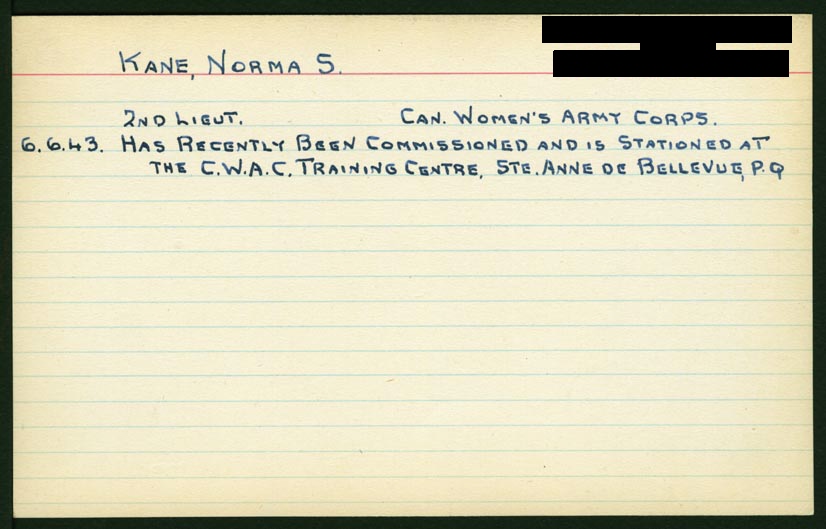 KANE, NORMA S.
2ND LIEUT. CAN. WOMEN'S ARMY CORPS.
6.6.43. HAS RECENTLY BEEN COMMISSIONED AND IS STATIONED AT
THE C.W.A.C. TRAINING CENTRE, STE. ANNE DE BELLEVUE, P.Q